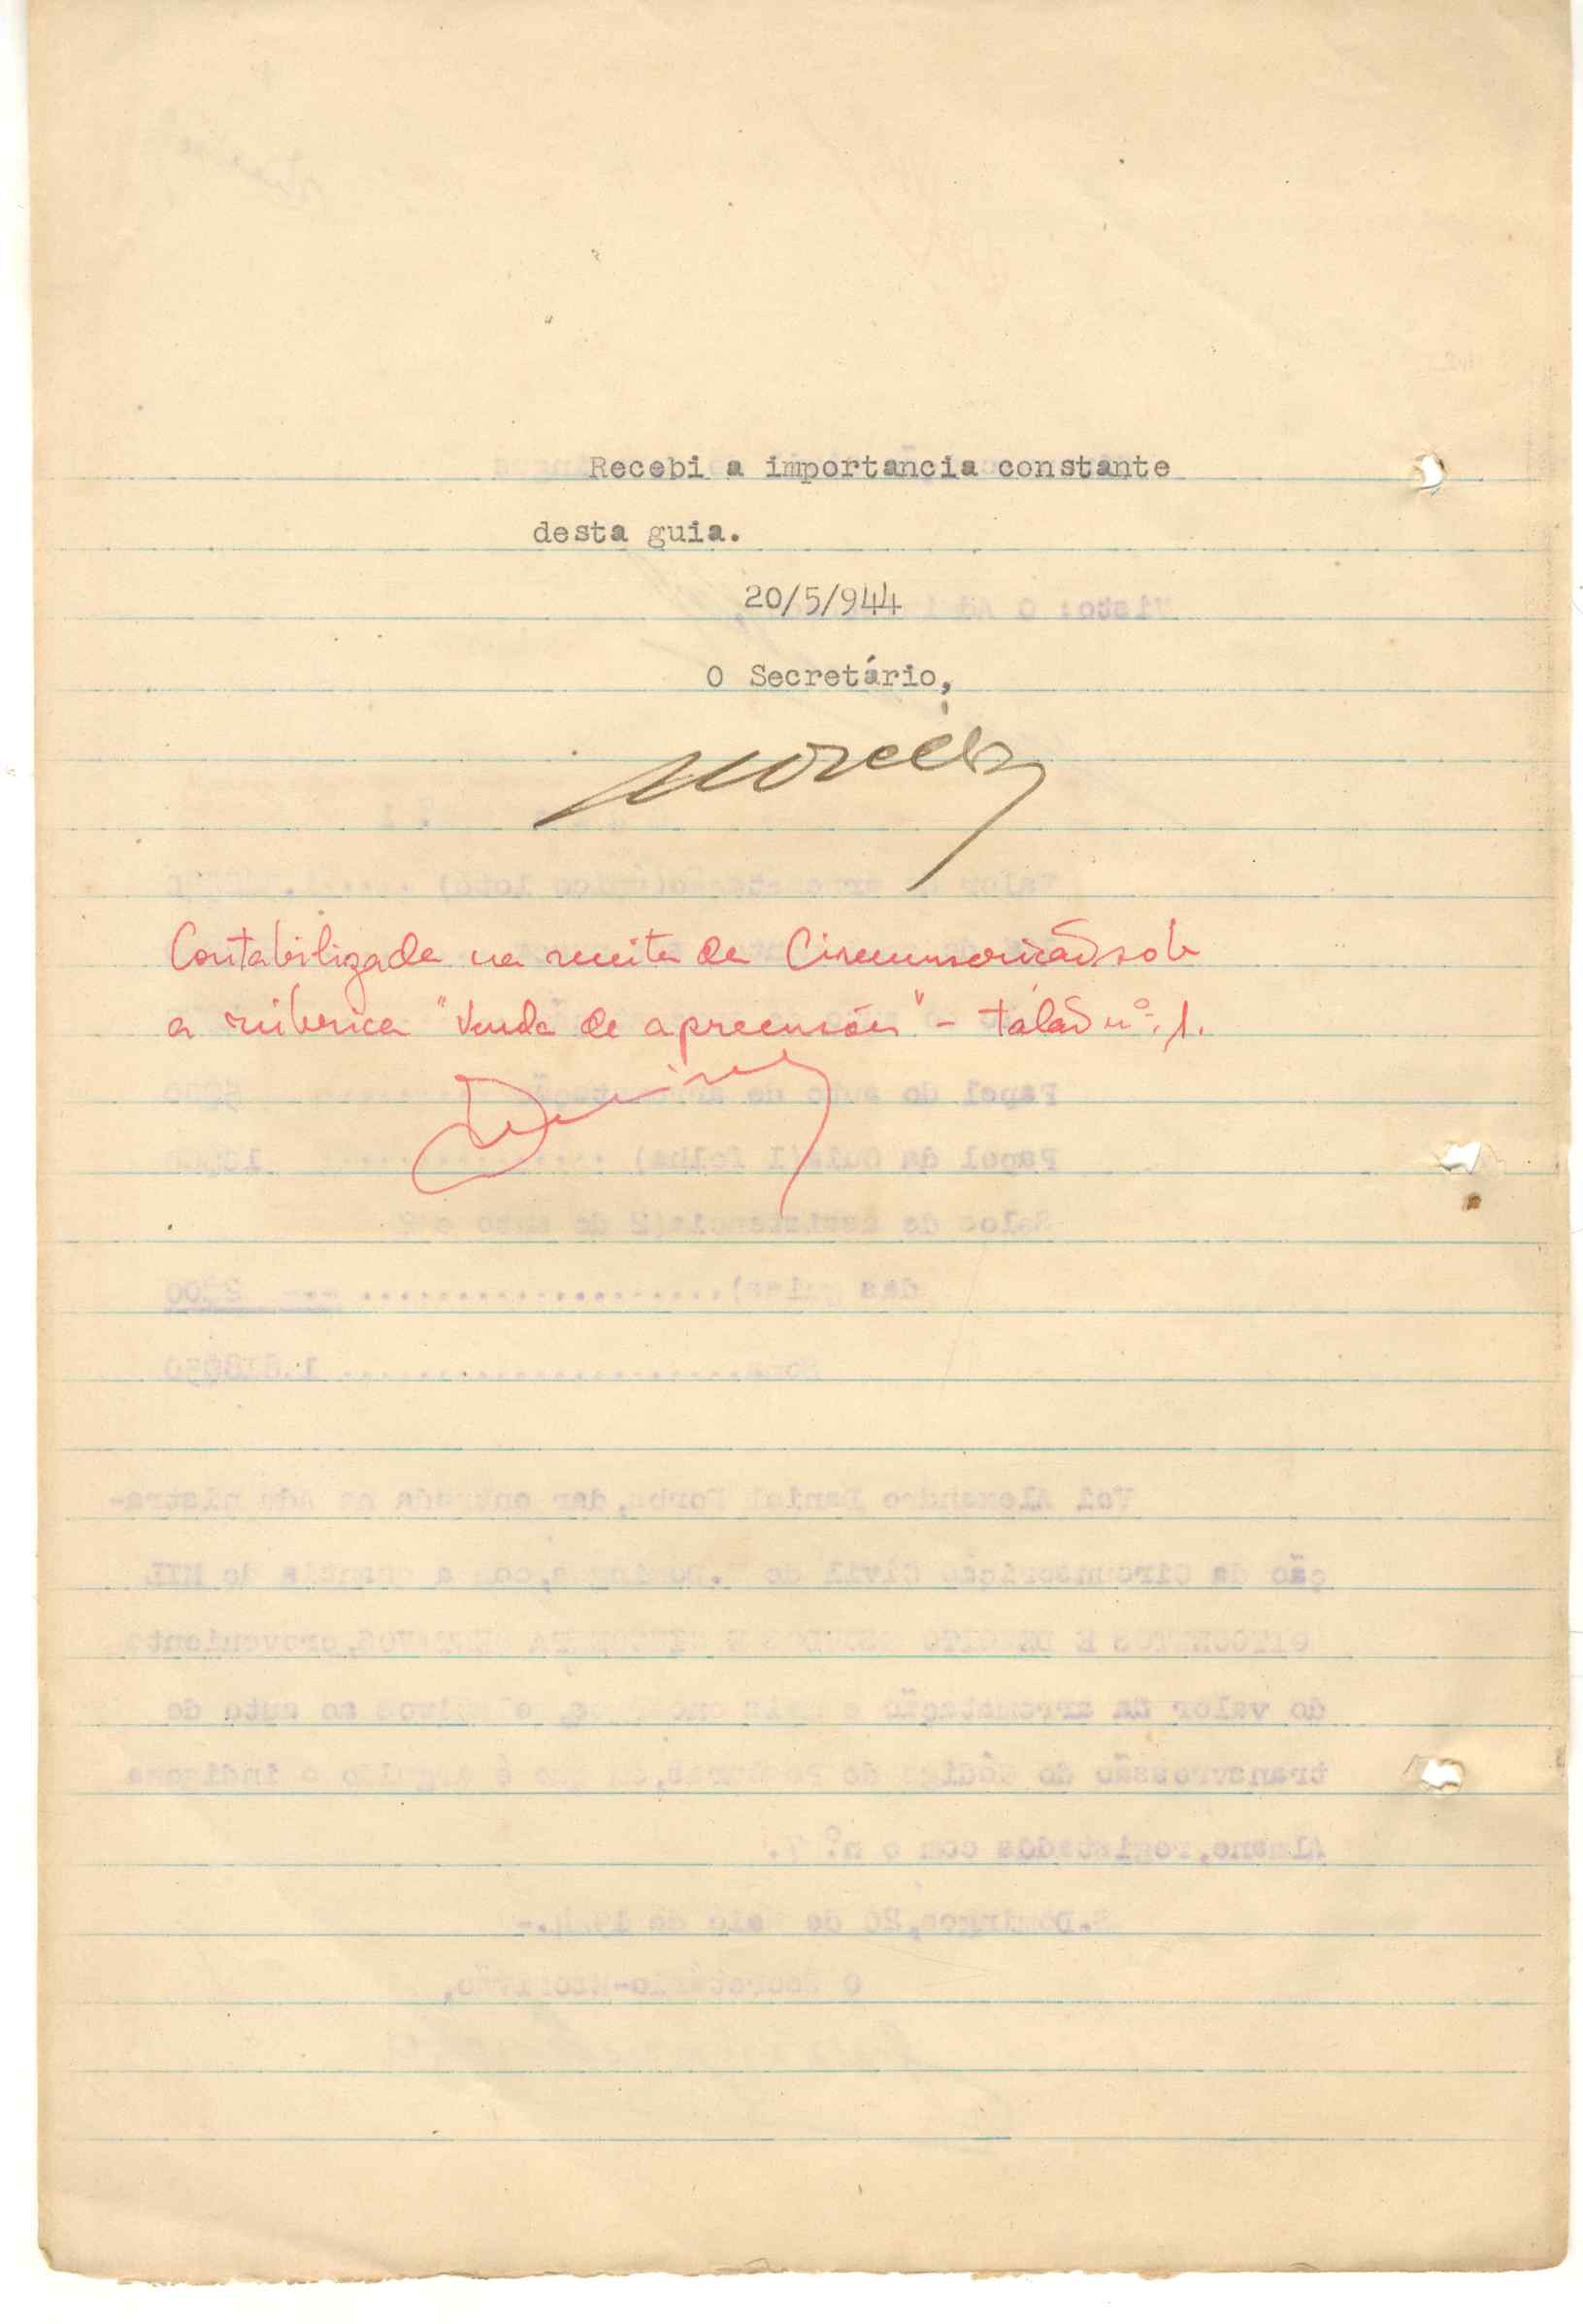 Recebi a importancia constante
desta guia.
20/5/944
O Secretário,
Contabilizada na receita da Circunscrição sob
a rúbrica "Venda de apreensões" - talão nº. 1.